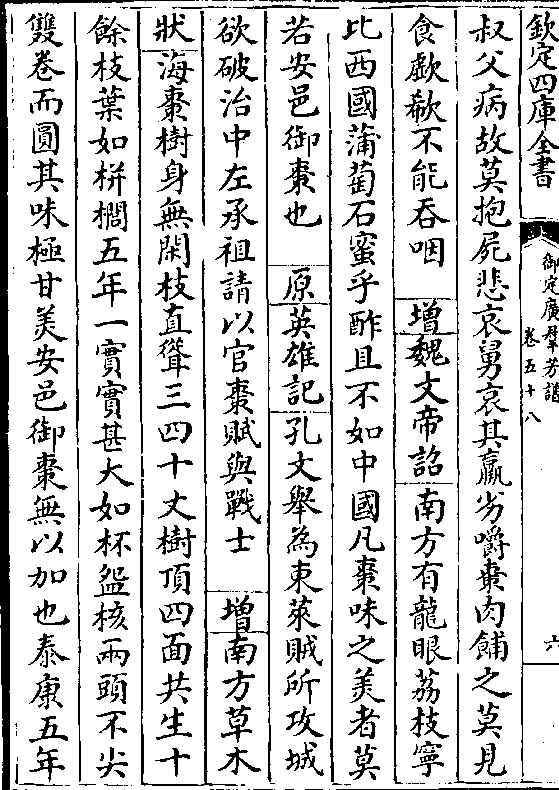 欽定四庫全書
御定廣羣芳譜
卷五十八
六
叔父病故莫抱屍悲哀舅哀其羸劣嚼棗肉餔之莫見
食歔欷不能吞咽 增魏文帝詔南方有龍眼荔枝寧
比西國蒲萄石蜜乎酢且不如中國凡棗味之美者莫
若安邑御棗也 原英雄記孔文舉為東萊賊所攻城
欲破治中左承祖請以官棗賦與戰士 增南方草木
狀海棗樹身無閑枝直聳三四十丈樹頂四面共生十
餘枝葉如栟櫚五年一實實甚大如杯盌核兩頭不尖
雙卷而圓其味極甘美安邑御棗無以加也泰康五年